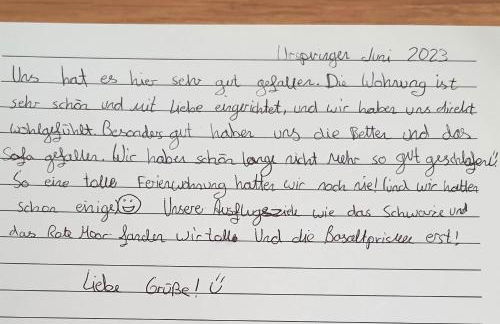 Urspringen Juni 2023
Uns hat es hier sehr gut gefallen. Die Wohnung ist
sehr schön und mit Liebe eingerichtet, und wir haben uns direkt
wohlgefühlt. Besonders gut haben uns die Betten und das
Sofa gefallen. Wir haben schön lange nicht mehr so gut geschlafen!
So eine tolle Ferienwohnung hatten wir noch nie! (und wir hatten
schon einige!) Unsere Ausflugsziele wie das Schwarze und
das Rote Moor fanden wir toll. Und die Basaltprismen erst!
Liebe Grüße!